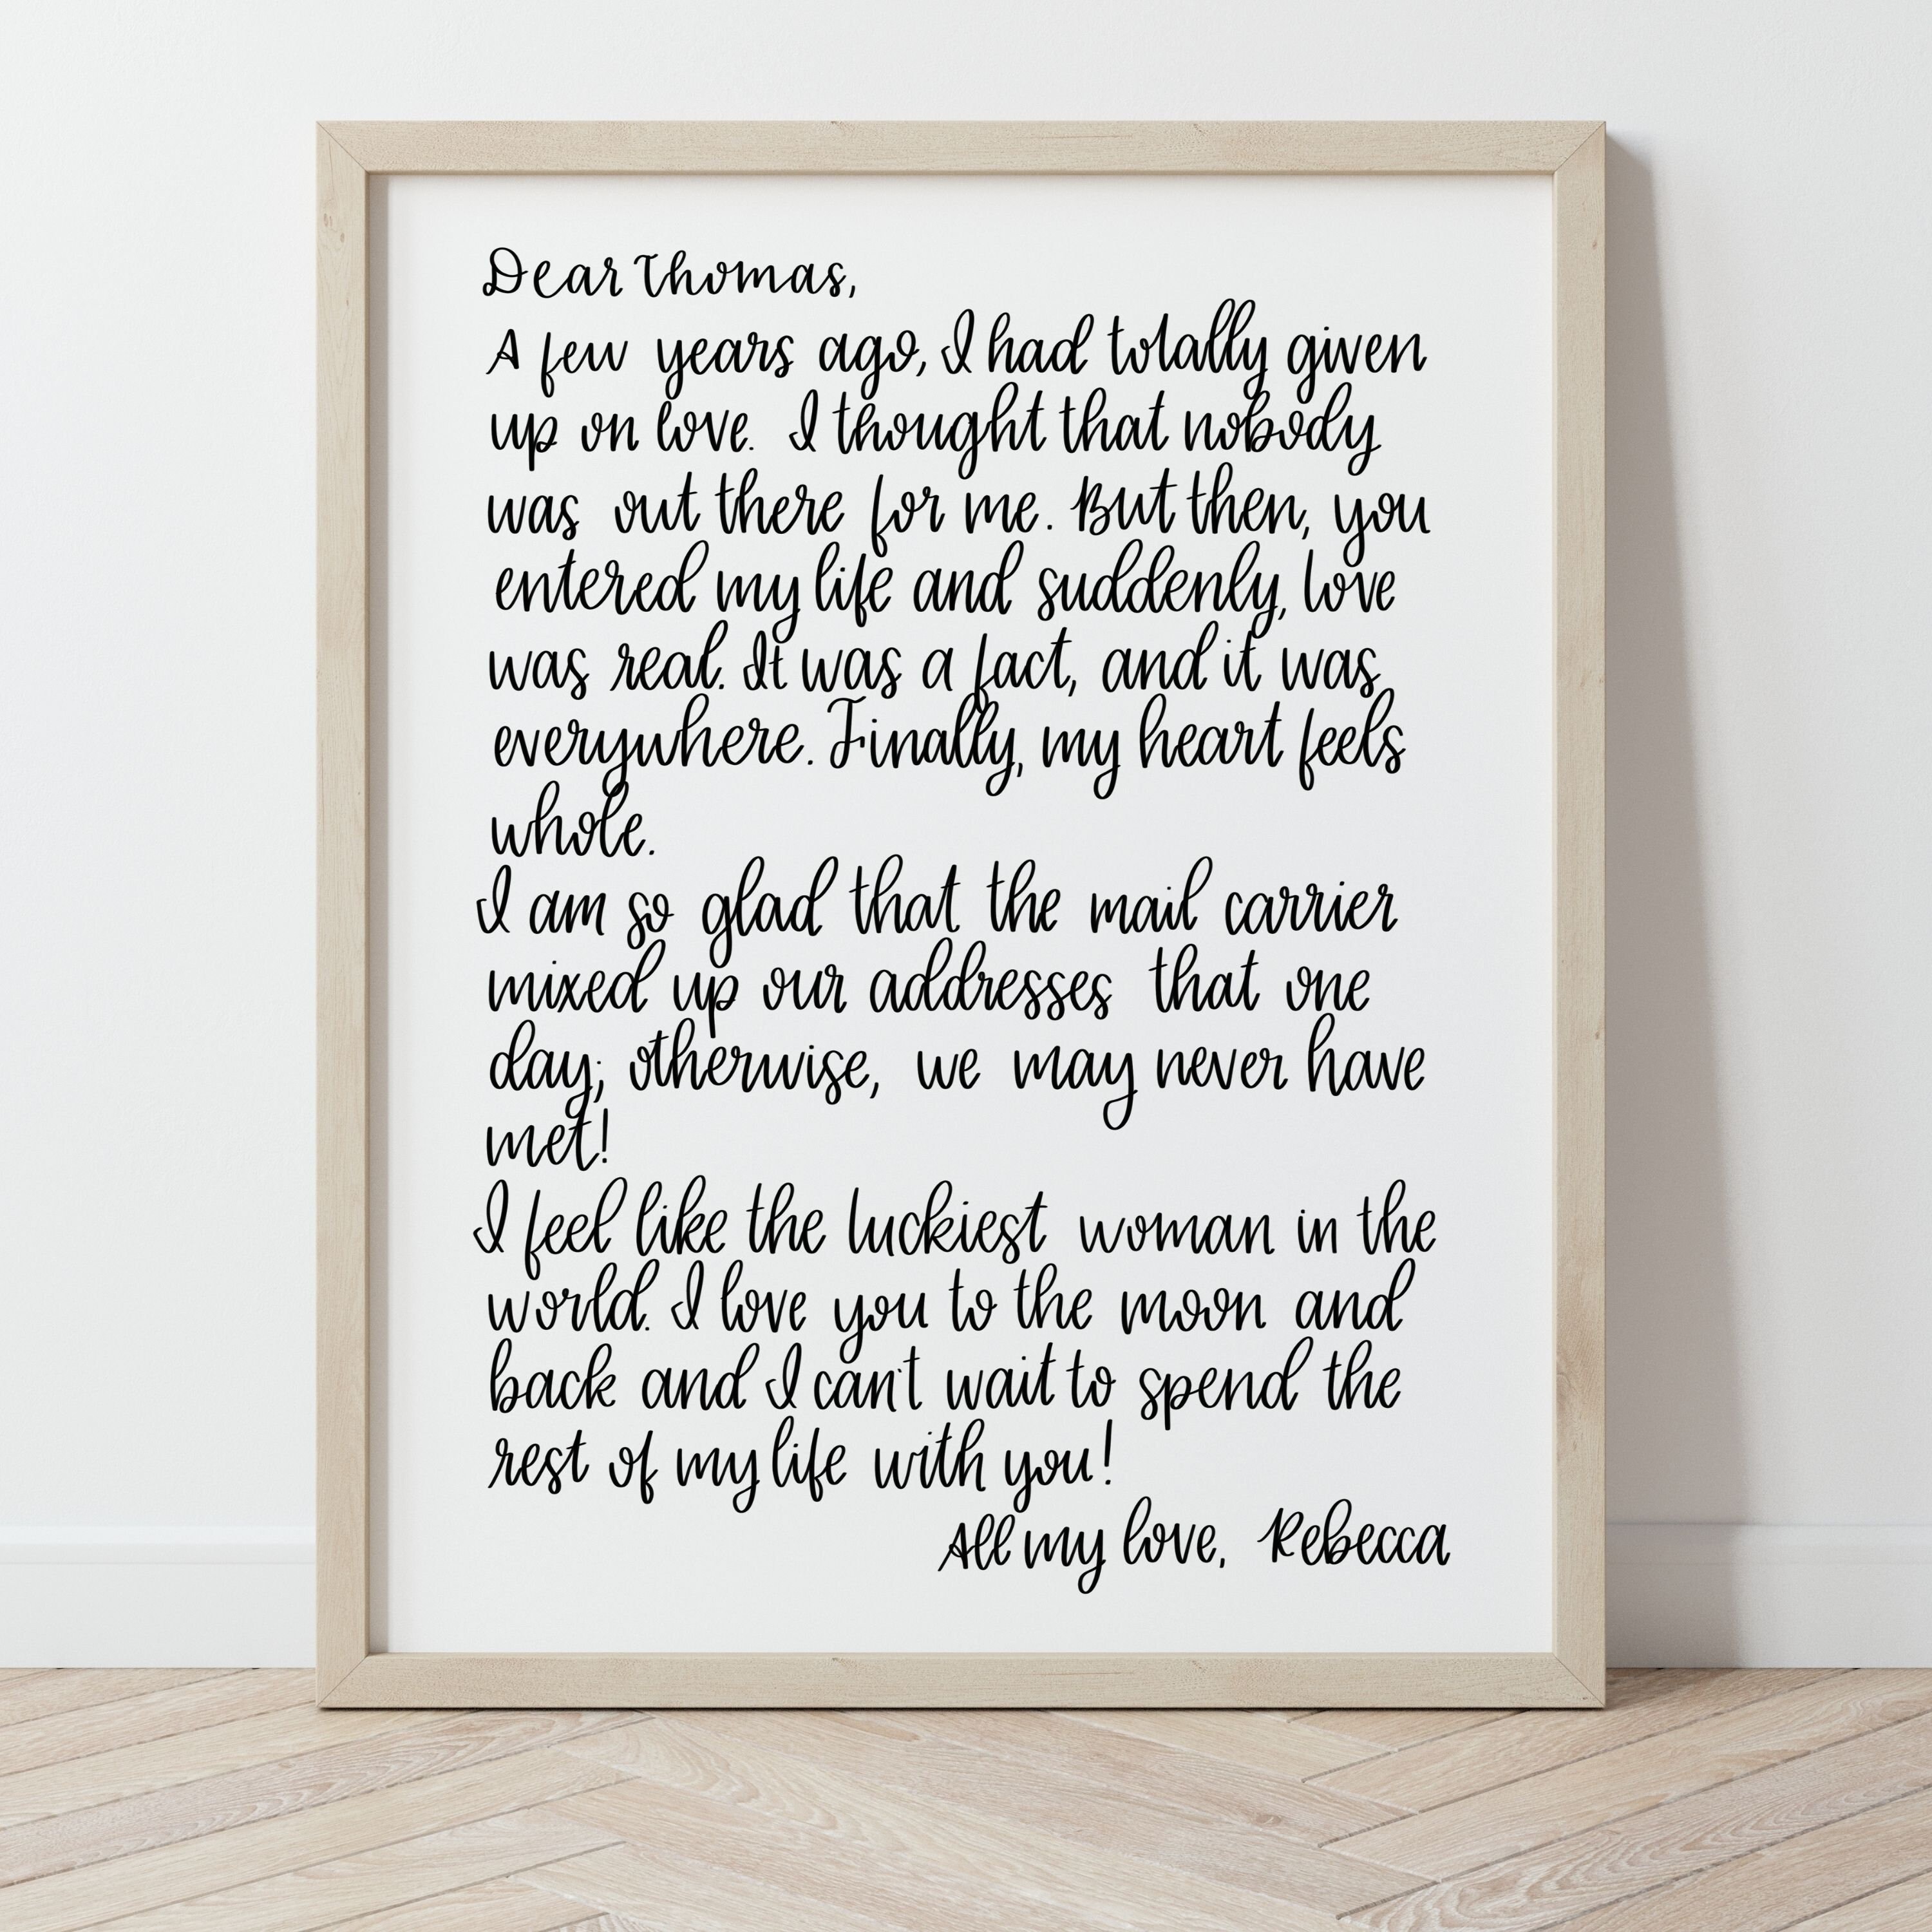 Dear Thomas,
A few years ago, I had totally given
up on love. I thought that nobody
was out there for me. But then, you
entered my life and suddenly, love
was real. It was a fact, and it was
everywhere. Finally, my heart feels
whole.
I am so glad that the mail carrier
mixed up our addresses that one
day; otherwise, we may never have
met!
I feel like the luckiest woman in the
world. I love you to the moon and
back and I can't wait to spend the
rest of my life with you!
All my love, Rebecca